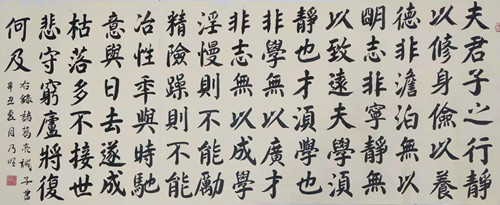 夫君子之行靜
以修身儉以養
德非澹泊無以
明志非寧靜無
以致遠夫學須
靜也才須學也
非學無以廣才
非志無以成學
淫慢則不能勵
精險躁則不能
冶性年與時馳
意與日去遂成
枯落多不接世
悲守窮廬將復
何及
右錄諸葛亮誡子書
辛丑夏月乃